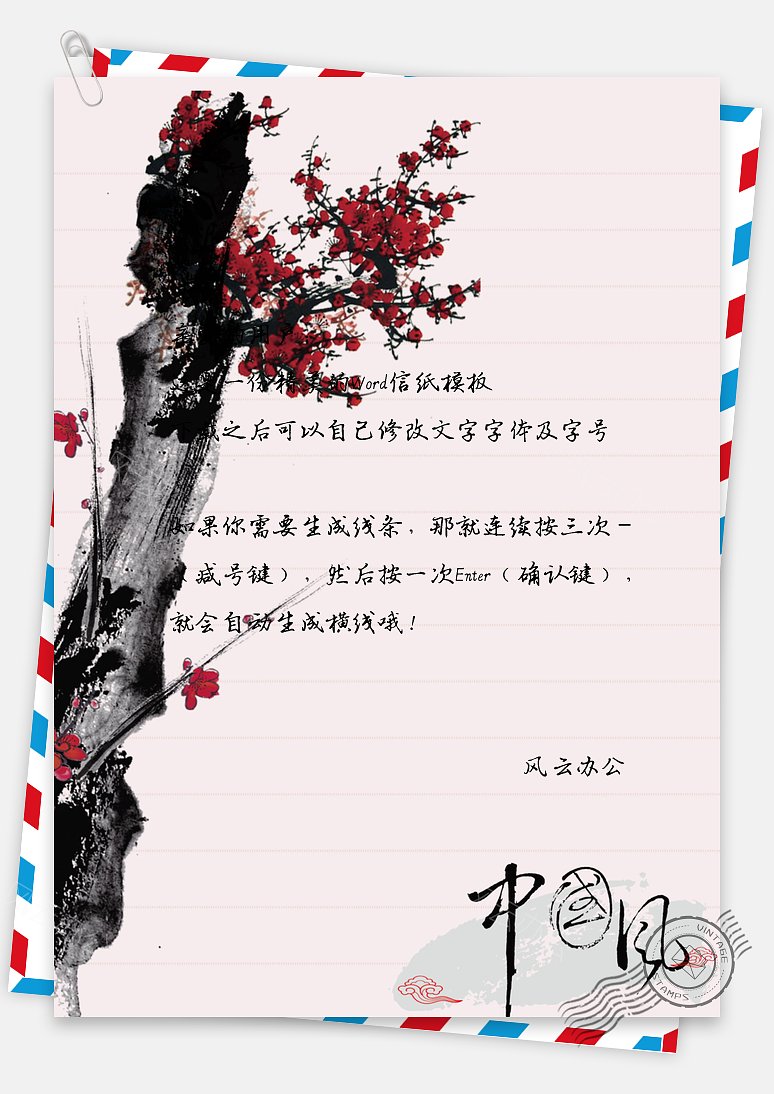 一份精美的Word信纸模板
之后可以自己修改文字字体及字号
如果你需要生成线条，那就连续按三次－
（减号键），然后按一次Enter（确认键），
就会自动生成横线哦！
风云办公
中国风
VINTAGE
STAMPS